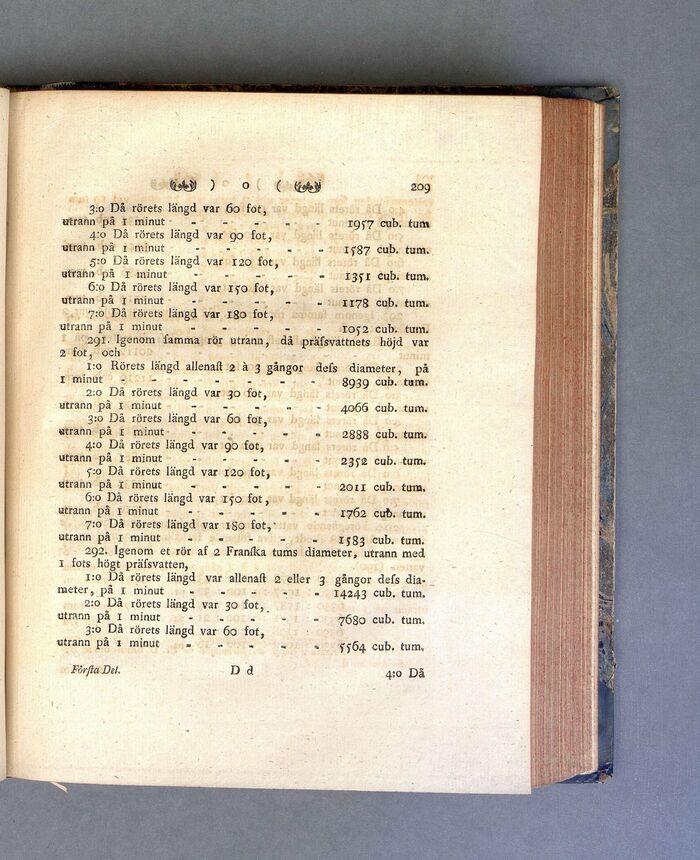 ) o ( 209
3:o Då rörets längd var 60 fot,
utrann på 1 minut - - - - - - 1957 cub. tum
4:o Då rörets längd var 90 fot,
utrann på 1 minut - - - - - - 1587 cub. tum.
5:o Då rörets längd var 120 fot,
utrann på 1 minut - - - - - - 1351 cub. tum.
6:o Då rörets längd var 150 fot,
utrann på 1 minut - - - - - - 1178 cub. tum.
7:o Då rörets längd var 180 fot,
utrann på 1 minut - - - - - - 1052 cub. tum.
291. Igenom ſamma rör utrann, då präſsvattnets höjd var
2 fot, och
1:o Rörets längd allenaſt 2 à 3 gångor deſs diameter, på
1 minut - - - - - - - - 8939 cub. tum.
2:o Då rörets längd var 30 fot,
utrann på 1 minut - - - - - - 4066 cub. tum.
3:o Då rörets längd var 60 fot,
utrann på 1 minut - - - - - - 2888 cub. tum.
4:o Då rörets längd var 90 fot,
utrann på 1 minut - - - - - - 2352 cub. tum.
5:o Då rörets längd var 120 fot,
utrann på 1 minut - - - - - - 2011 cub. tum.
6:o Då rörets längd var 150 fot,
utrann på 1 minut - - - - - - 1762 cub. tum.
7:o Då rörets längd var 180 fot,
utrann på 1 minut - - - - - - 1583 cub. tum.
292. Igenom et rör af 2 Franſka tums diameter, utrann med
1 fots högt präſsvatten,
1:o Då rörets längd var allenaſt 2 eller 3 gångor deſs dia-
meter, på 1 minut - - - - - 14243 cub. tum.
2:o Då rörets längd var 30 fot,
utrann på 1 minut - - - - - 7680 cub. tum.
3:o Då rörets längd var 60 fot,
utrann på 1 minut - - - - - 5564 cub. tum.
Förſta Del. D d 4:o Då